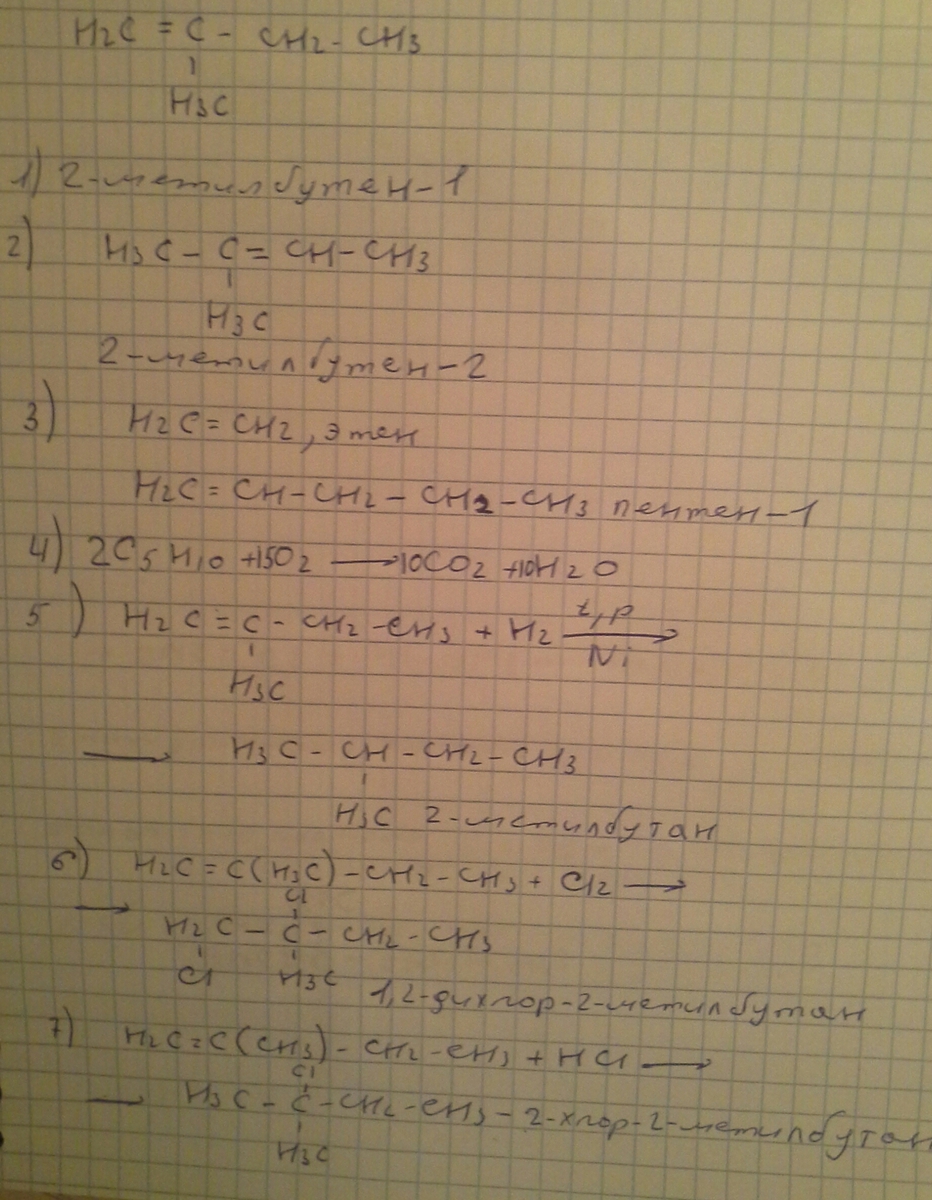 H₂C = C - CH₂ - CH₃
H₃C
1) 2-метилбутен-1
2) H₃C - C = CH - CH₃
H₃C
2-метилбутен-2
3) H₂C = CH₂, этен
H₂C = CH - CH₂ - CH₂ - CH₃ пентен-1
4) 2C₅H₁₀ + 15O₂ ⟶ 10CO₂ + 10H₂O
5) H₂C = C - CH₂ - CH₃ + H₂ t, p ⟶ Ni
H₃C
⟶ H₃C - CH - CH₂ - CH₃
H₃C 2-метилбутан
6) H₂C = C(H₃C) - CH₂ - CH₃ + Cl₂ ⟶
Cl
⟶ H₂C - C - CH₂ - CH₃
Cl H₃C 1,2-дихлор-2-метилбутан
7) H₂C = C(CH₃) - CH₂ - CH₃ + HCl ⟶
Cl
⟶ H₃C - C - CH₂ - CH₃ - 2-хлор-2-метилбутан
H₃C